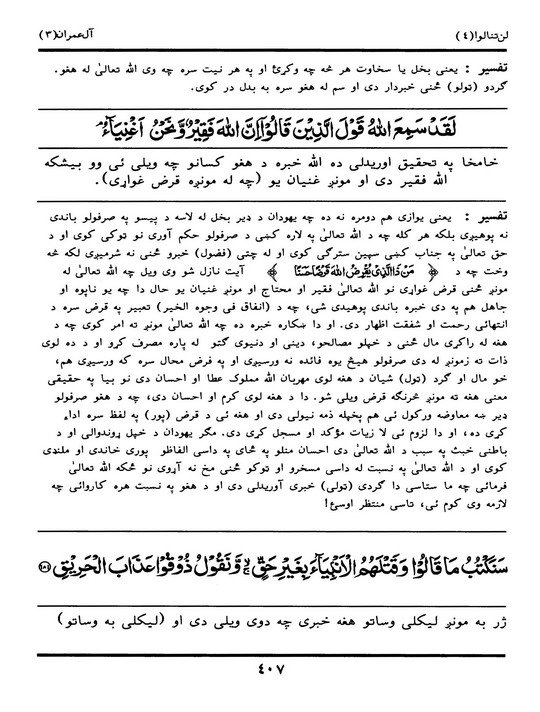 لن تنالوا (٤)
آل عمران (٣)
تفسیر : یعنی بخل یا سخاوت هر څه چه وکړئ او په هر نیت سره چه وی الله تعالیٰ له هغو.
گردو (ټولو) څنی خبردار دی او سم له هغو سره به بدل در کوی.
لَقَدْ سَمِعَ اللهُ قَوْلَ الَّذِيْنَ قَالُوْۤا اِنَّ اللهَ فَقِيْرٌ وَّنَحْنُ اَغْنِيَآءُ ۘ
خامخا په تحقیق اوریدلی ده الله خبره د هغو کسانو چه ویلی ئی وو بیشکه
الله فقیر دی او مونږ غنیان یو (چه له مونږه قرض غواړی).
تفسیر : یعنی یوازی هم دومره نه ده چه یهودان د ډیر بخل له لاسه د پیسو په صرفولو باندی
نه پوهیږی بلکه هر کله چه د الله تعالیٰ په لاره کښی د صرفولو حکم آوری نو توکی کوی او د
حق تعالیٰ په جناب کښی سپین سترگی کوی او له چتی (فضول) خبرو څنی نه شرمیږی لکه څه
وخت چه د ﴿ مَنْ ذَا الَّذِيْ يُقْرِضُ اللهَ قَرْضًا حَسَنًا ﴾ آیت نازل شو وی ویل چه الله تعالیٰ له
مونږ څنی قرض غواړی نو الله تعالیٰ فقیر او محتاج او مونږ غنیان یو حال دا چه یو ناپوه او
جاهل هم په دی خبره باندی پوهیدی شی، چه د (انفاق فی وجوه الخیر) تعبیر په قرض سره د
انتهائی رحمت او شفقت اظهار دی. او دا ښکاره خبره ده چه الله تعالیٰ مونږ ته امر کوی چه د
هغه له راکړی مال څنی د خپلو مصالحو، دینی او دنیوی گټو له پاره مصرف کړو او د ده لوی
ذات ته زمونږ له دی صرفولو هیڅ یوه فائده نه ورسیږی او په فرض محال سره که ورسیږی هم،
خو مال او گرد (ټول) شیان د هغه لوی مهربان الله مملوک عطا او احسان دی نو بیا په حقیقی
معنی هغه ته مونږ څرنگه قرض ویلی شو. دا د هغه لوی کرم او احسان دی، چه د هغو صرفولو
ډیر ښه معاوضه ورکول ئی هم پخپله ذمه نیولی دی او هغه ئی د قرض (پور) په لفظ سره اداء
کړی ده، او دا لزوم ئی لا زیات مؤکد او مسجل کړی دی. مگر یهودان د خپل ړوندوالی او د
باطنی خبث په سبب د الله تعالیٰ دی احسان منلو په ځای په داسی الفاظو پوری خاندی او ملنډی
کوی او د الله تعالیٰ په نسبت له داسی مسخرو او توکو څنی مخ نه آړوی نو ځکه الله تعالیٰ
فرمائی چه ما ستاسی دا گردی (ټولی) خبری آوریدلی دی او د هغو په نسبت هره کاروائی چه
لازمه وی کوم ئی، تاسی منتظر اوسئ!
سَنَكْتُبُ مَا قَالُوْا وَقَتْلَهُمُ الْاَنْۢبِيَآءَ بِغَيْرِ حَقٍّ ۙ وَّنَقُوْلُ ذُوْقُوْا عَذَابَ الْحَرِيْقِ ﴿١٨١﴾
ژر به مونږ لیکلی وساتو هغه خبری چه دوی ویلی دی او (لیکلی به وساتو)
٤٠٧